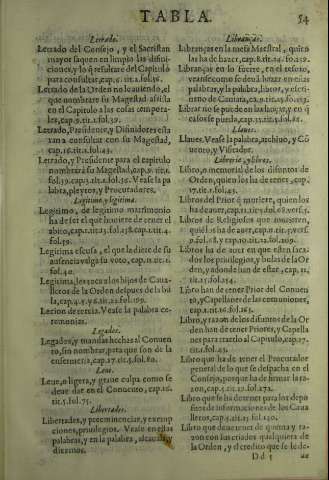 TABLA. 54
Letrado.
Letrado del Consejo, y el Sacristan
mayor saquen en limpio las difini-
ciones, y lo q̃ resultare del Capitulo
para consultar, cap.5. tit.1. fol.36.
Letrado de la Orden no leauiendo, el
que nombrare su Magestad assista
en el Capitulo a las cosas compete-
tes, cap.8. tit.1. fol.39.
Letrado, Presidente, y Difinidores està
van a consultar con su Magestad,
cap.16. tit.1. fol.43.
Letrado, y Presidente para el capitulo
nombrarà su Magestad, cap.9. tit.1.
fol.39. cap.1. tit.1. fol.35. Vease la pa
labra, pleytos, y Procuradores.
Legitimo, y legitima.
Legitimo, de legitimo matrimonio
ha de ser el que huuiere de tener el
abito, cap.1.
fol.39.
Legitima escusa, el que la diere de su
ausencia valga su voto, cap.11. tit.1.
fol.40.
Legitima, les toca a los hijos de Caua-
lleros de la Orden despues de la bu
la, cap.4. y 6. tit.12. fol.109.
Lecion de tercia. Vease la palabra ce-
remonias.
Legados.
Legados, y mandas hechas al Conuen
to, sin nombrar para que son de la
enfermeria, cap.17. tit.5. fol.80.
Leue.
Leue, o ligera, y graue culpa como se
deue dar en el Conuento, cap.16.
tit.5. fol.75.
Libertades.
Libertades, y preeminencias, y exemp
ciones, priuilegios. Vease en estas
palabras, y en la palabra, alcauala, y
diezmos.
Libranças.
Libranças en la mesa Maestral, quien
las ha de hazer, cap.8.
Libranças en lo secreto, en el tesoro,
y
palabras, y la palabra, libros, y electi-
uos de Contaria, cap.2. tit.15. fol.153.
Librar no se puede en las lanças, y en q̃
caso se pueda, cap.33. tit.6. fol.88.
Llaues.
Llaues. Vease la palabra, archiuo, y Có
uento, y Visitador.
Librerìa, y libros.
Libro, o memorial de los difuntos de
Orden, quien los ha de tener, cap.
17. tit.5. fol.45.
Libros del Prior q̃ muriere, quien los
ha de auer, cap.11. tit.5. fol.68. vers.
Libros de Religiosos que murieren,
quiẽ los ha de auer, cap.11. tit.5. vers.
Libros ha de auer en que esten sacados
los priuilegios, y bulas de la Or
den, y adonde han de estar, cap. 11,
tit.15. fol.154.
Libro han de tener Prior del Conuen
to, y Capellanes de las comuniones,
cap.1. tit.16. fol.163.
Libro, y razon de los difuntos de la Or
den han de tener Priores, y Capella
nes para traerlo al Capitulo, cap.17.
tit.5. fol.45.
Libro que ha de tener el Procurador
general de lo que se despacha en el
Consejo, porque ha de firmar la ra-
zon, cap.4. tit.10. fol.172.
Libro que se ha de tener para los depo
sitos de informaciones de los Caua
lleros, cap.15. tit.4. fol.190.
Libro que deue tener de quenta y ra-
zon con los criados qualquiera de
la Orden, y el credito que se le de-
Dd 5 ue